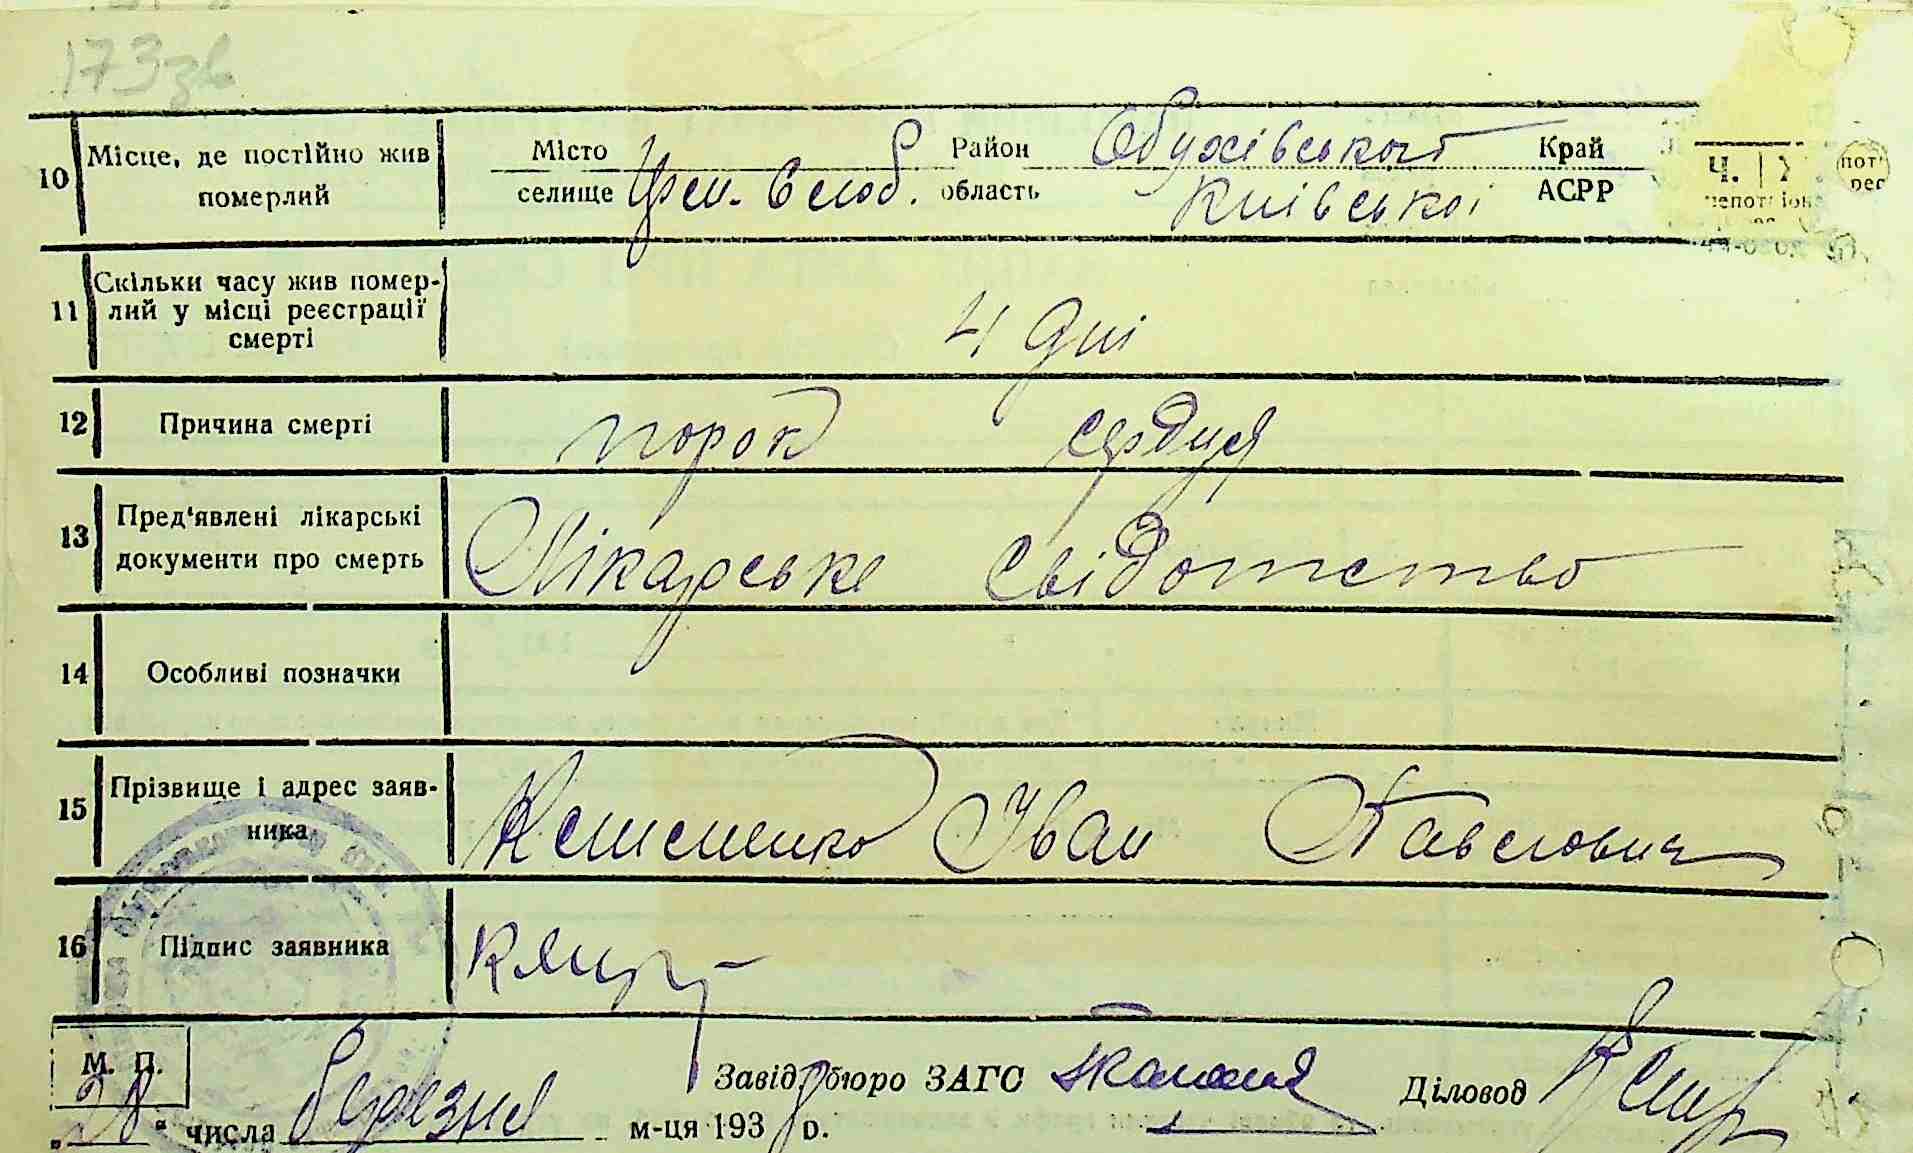 173зв
10 Місце, де постійно жив померлий Місто селище Район Обухівського Край
область Київської АСРР
11 Скільки часу жив помер-
лий у місці реєстрації
смерті 4 дні
12 Причина смерті порок сердця
13 Пред'явлені лікарські
документи про смерть Лікарське свідотство
14 Особливі позначки
15 Прізвище і адрес заяв-
ника Іван Павлович
16 Підпис заявника
М. П. Завід. бюро ЗАГС Діловод
„28“ числа березня м-ця 193 р.